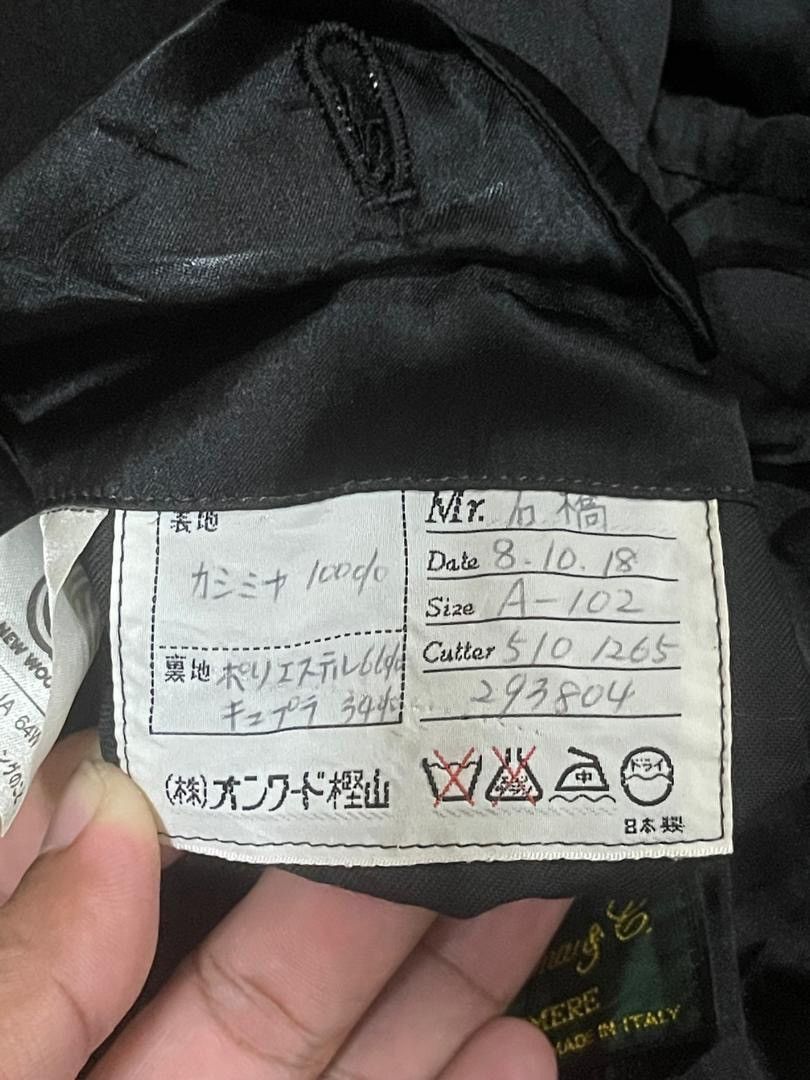 表地
カシミヤ 100%
裏地 ポリエステル 66%
キュプラ 34%
Mr. 石橋
Date 8.10.18
Size A-102
Cutter 510 1265
293804
(株)オンワード樫山
中
ドライ
日本製
NEW WOO
& C.
MERE
MADE IN ITALY